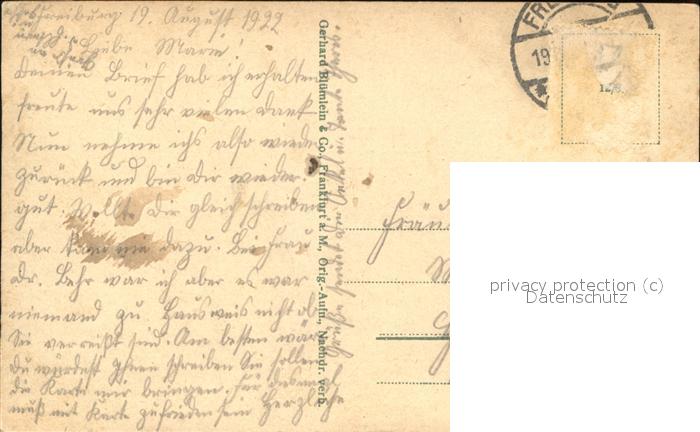 Freiburg 19. August 1922
Liebe Marie!
Deinen Brief hab ich erhalten
freute uns sehr vielen Dank
Nun nehme ichs also wieder
zurück und bin dir wieder
gut. Wollte dir gleich schreiben
aber kam nie dazu. Bei Frau
Dr. Behr war ich aber es war
niemand zu Haus weis nicht ob
Sie verreißt sind. Am besten wär
Du würdest Ihnen schreiben Sie sollen
die Karte mir bringen. Für diesmal
muß mit Karte zufrieden sein Herzliche
Grüße
Gerhard Blümlein & Co., Frankfurt a. M., Orig.-Aufn., Nachdr. verb.
FRE
19
12/8.
Fräu
privacy protection (c)
Datenschutz